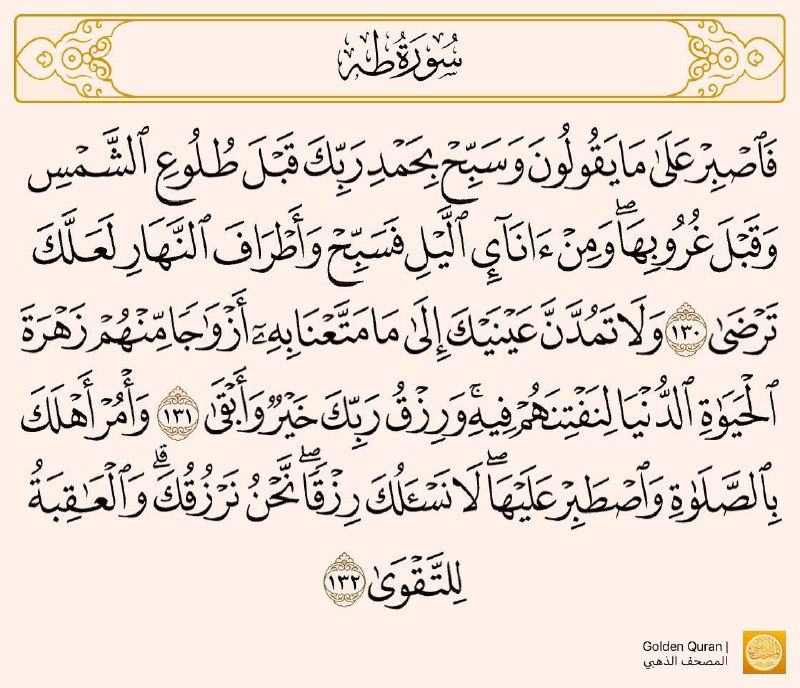 سُورَةُ طه
فَٱصْبِرْ عَلَىٰ مَا يَقُولُونَ وَسَبِّحْ بِحَمْدِ رَبِّكَ قَبْلَ طُلُوعِ ٱلشَّمْسِ
وَقَبْلَ غُرُوبِهَاۖ وَمِنْ ءَانَآئِ ٱلَّيْلِ فَسَبِّحْ وَأَطْرَافَ ٱلنَّهَارِ لَعَلَّكَ
تَرْضَىٰ ١٣٠ وَلَا تَمُدَّنَّ عَيْنَيْكَ إِلَىٰ مَا مَتَّعْنَا بِهِۦٓ أَزْوَٰجًا مِّنْهُمْ زَهْرَةَ
ٱلْحَيَوٰةِ ٱلدُّنْيَا لِنَفْتِنَهُمْ فِيهِۚ وَرِزْقُ رَبِّكَ خَيْرٌ وَأَبْقَىٰ ١٣١ وَأْمُرْ أَهْلَكَ
بِٱلصَّلَوٰةِ وَٱصْطَبِرْ عَلَيْهَاۖ لَا نَسْـَٔلُكَ رِزْقًاۖ نَّحْنُ نَرْزُقُكَۗ وَٱلْعَـٰقِبَةُ
لِلتَّقْوَىٰ ١٣٢
Golden Quran |
المصحف الذهبي